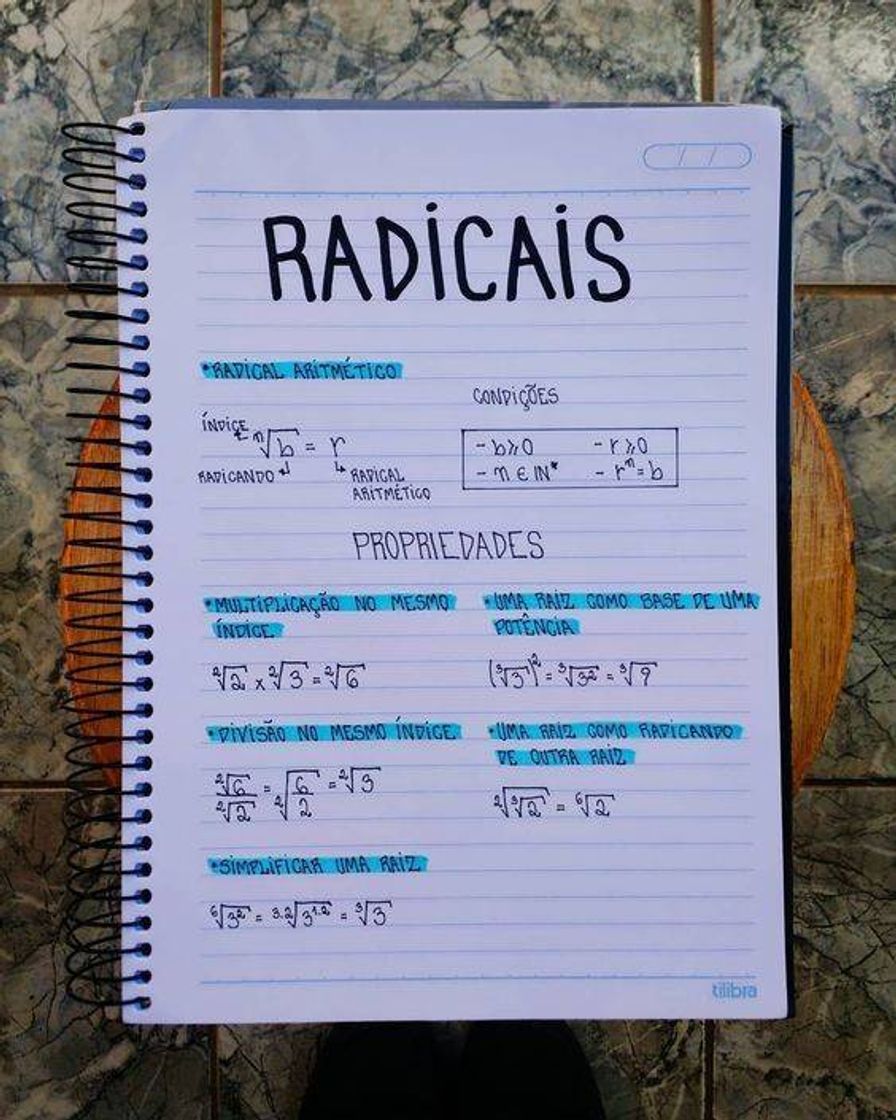 / /
RADICAIS
•RADICAL ARITMÉTICO
CONDIÇÕES
ÍNDICE
ⁿ√b = r
RADICANDO
RADICAL
ARITMÉTICO
- b⩾0 - r⩾0
- n ∈ IN* - rⁿ=b
PROPRIEDADES
•MULTIPLICAÇÃO NO MESMO
ÍNDICE
²√2 x ²√3 = ²√6
•UMA RAIZ COMO BASE DE UMA
POTÊNCIA
(³√3¹)² = ³√3² = ³√9
•DIVISÃO NO MESMO ÍNDICE
²√6 / ²√2 = ²√(6/2) = ²√3
•UMA RAIZ COMO RADICANDO
DE OUTRA RAIZ
²√³√2 = ⁶√2
•SIMPLIFICAR UMA RAIZ
⁶√3² = ³·²√3¹·² = ³√3
tilibra